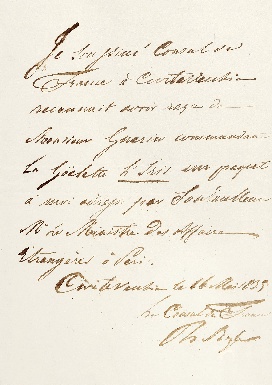 Je soussigné Consul de
France à Civitavechia
reconnait avoir reçu de
Monsieur Guerin commandant
la Goëlette l'Iris un paquet
à moi adressé par Son Excellence
Mr le Ministre des affaires
étrangères à Paris.
Civita Vechia le 16 Mai 1835
Le Consul de France